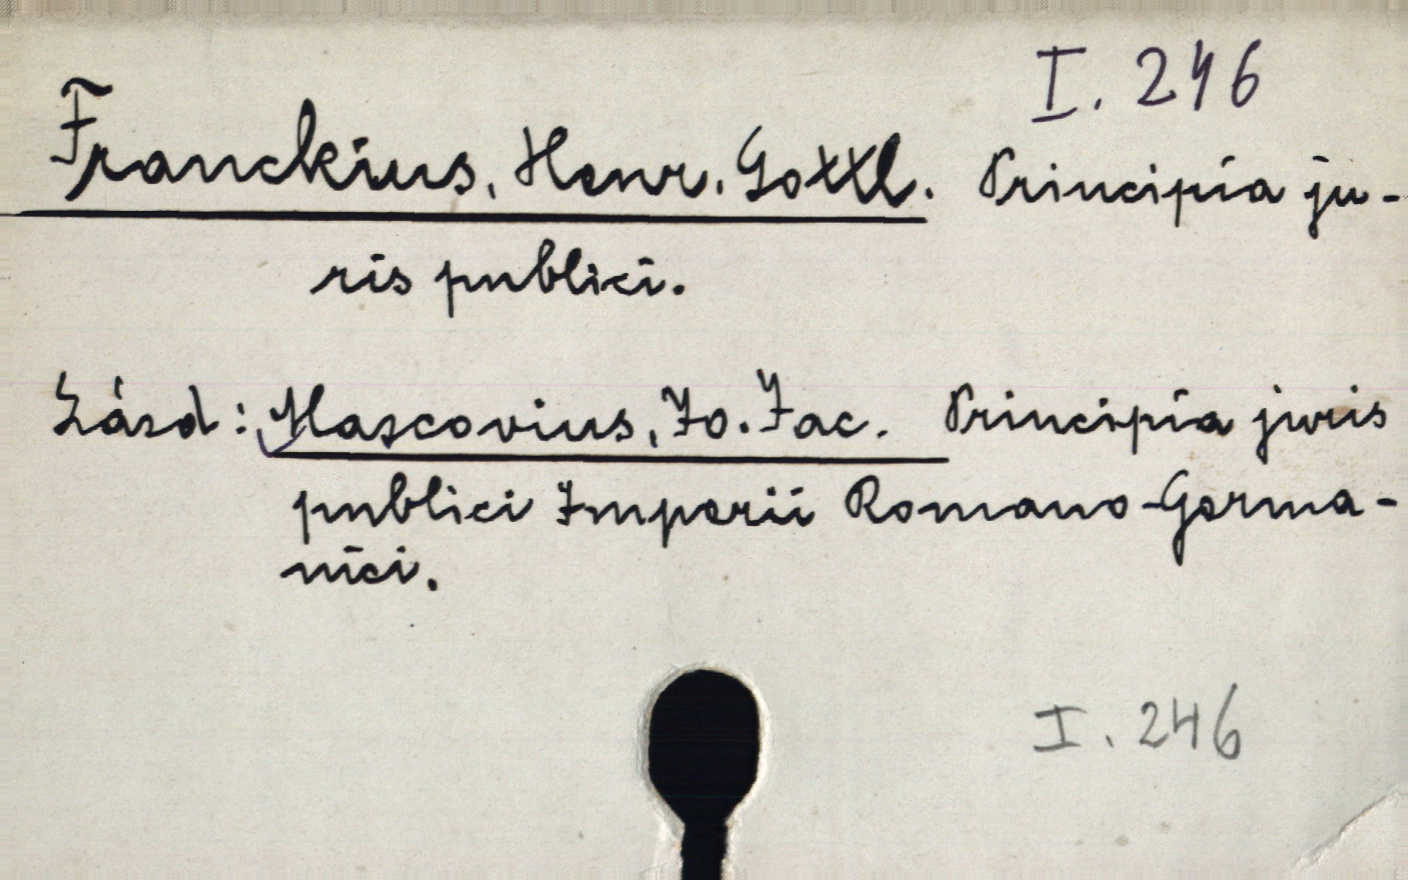 I. 246
Franckius, Henr. Gottl. Principia ju-
ris publici.
Lásd: Mascovius, Jo. Jac. Principia juris
publici Imperii Romano-Germa-
nici.
I. 246